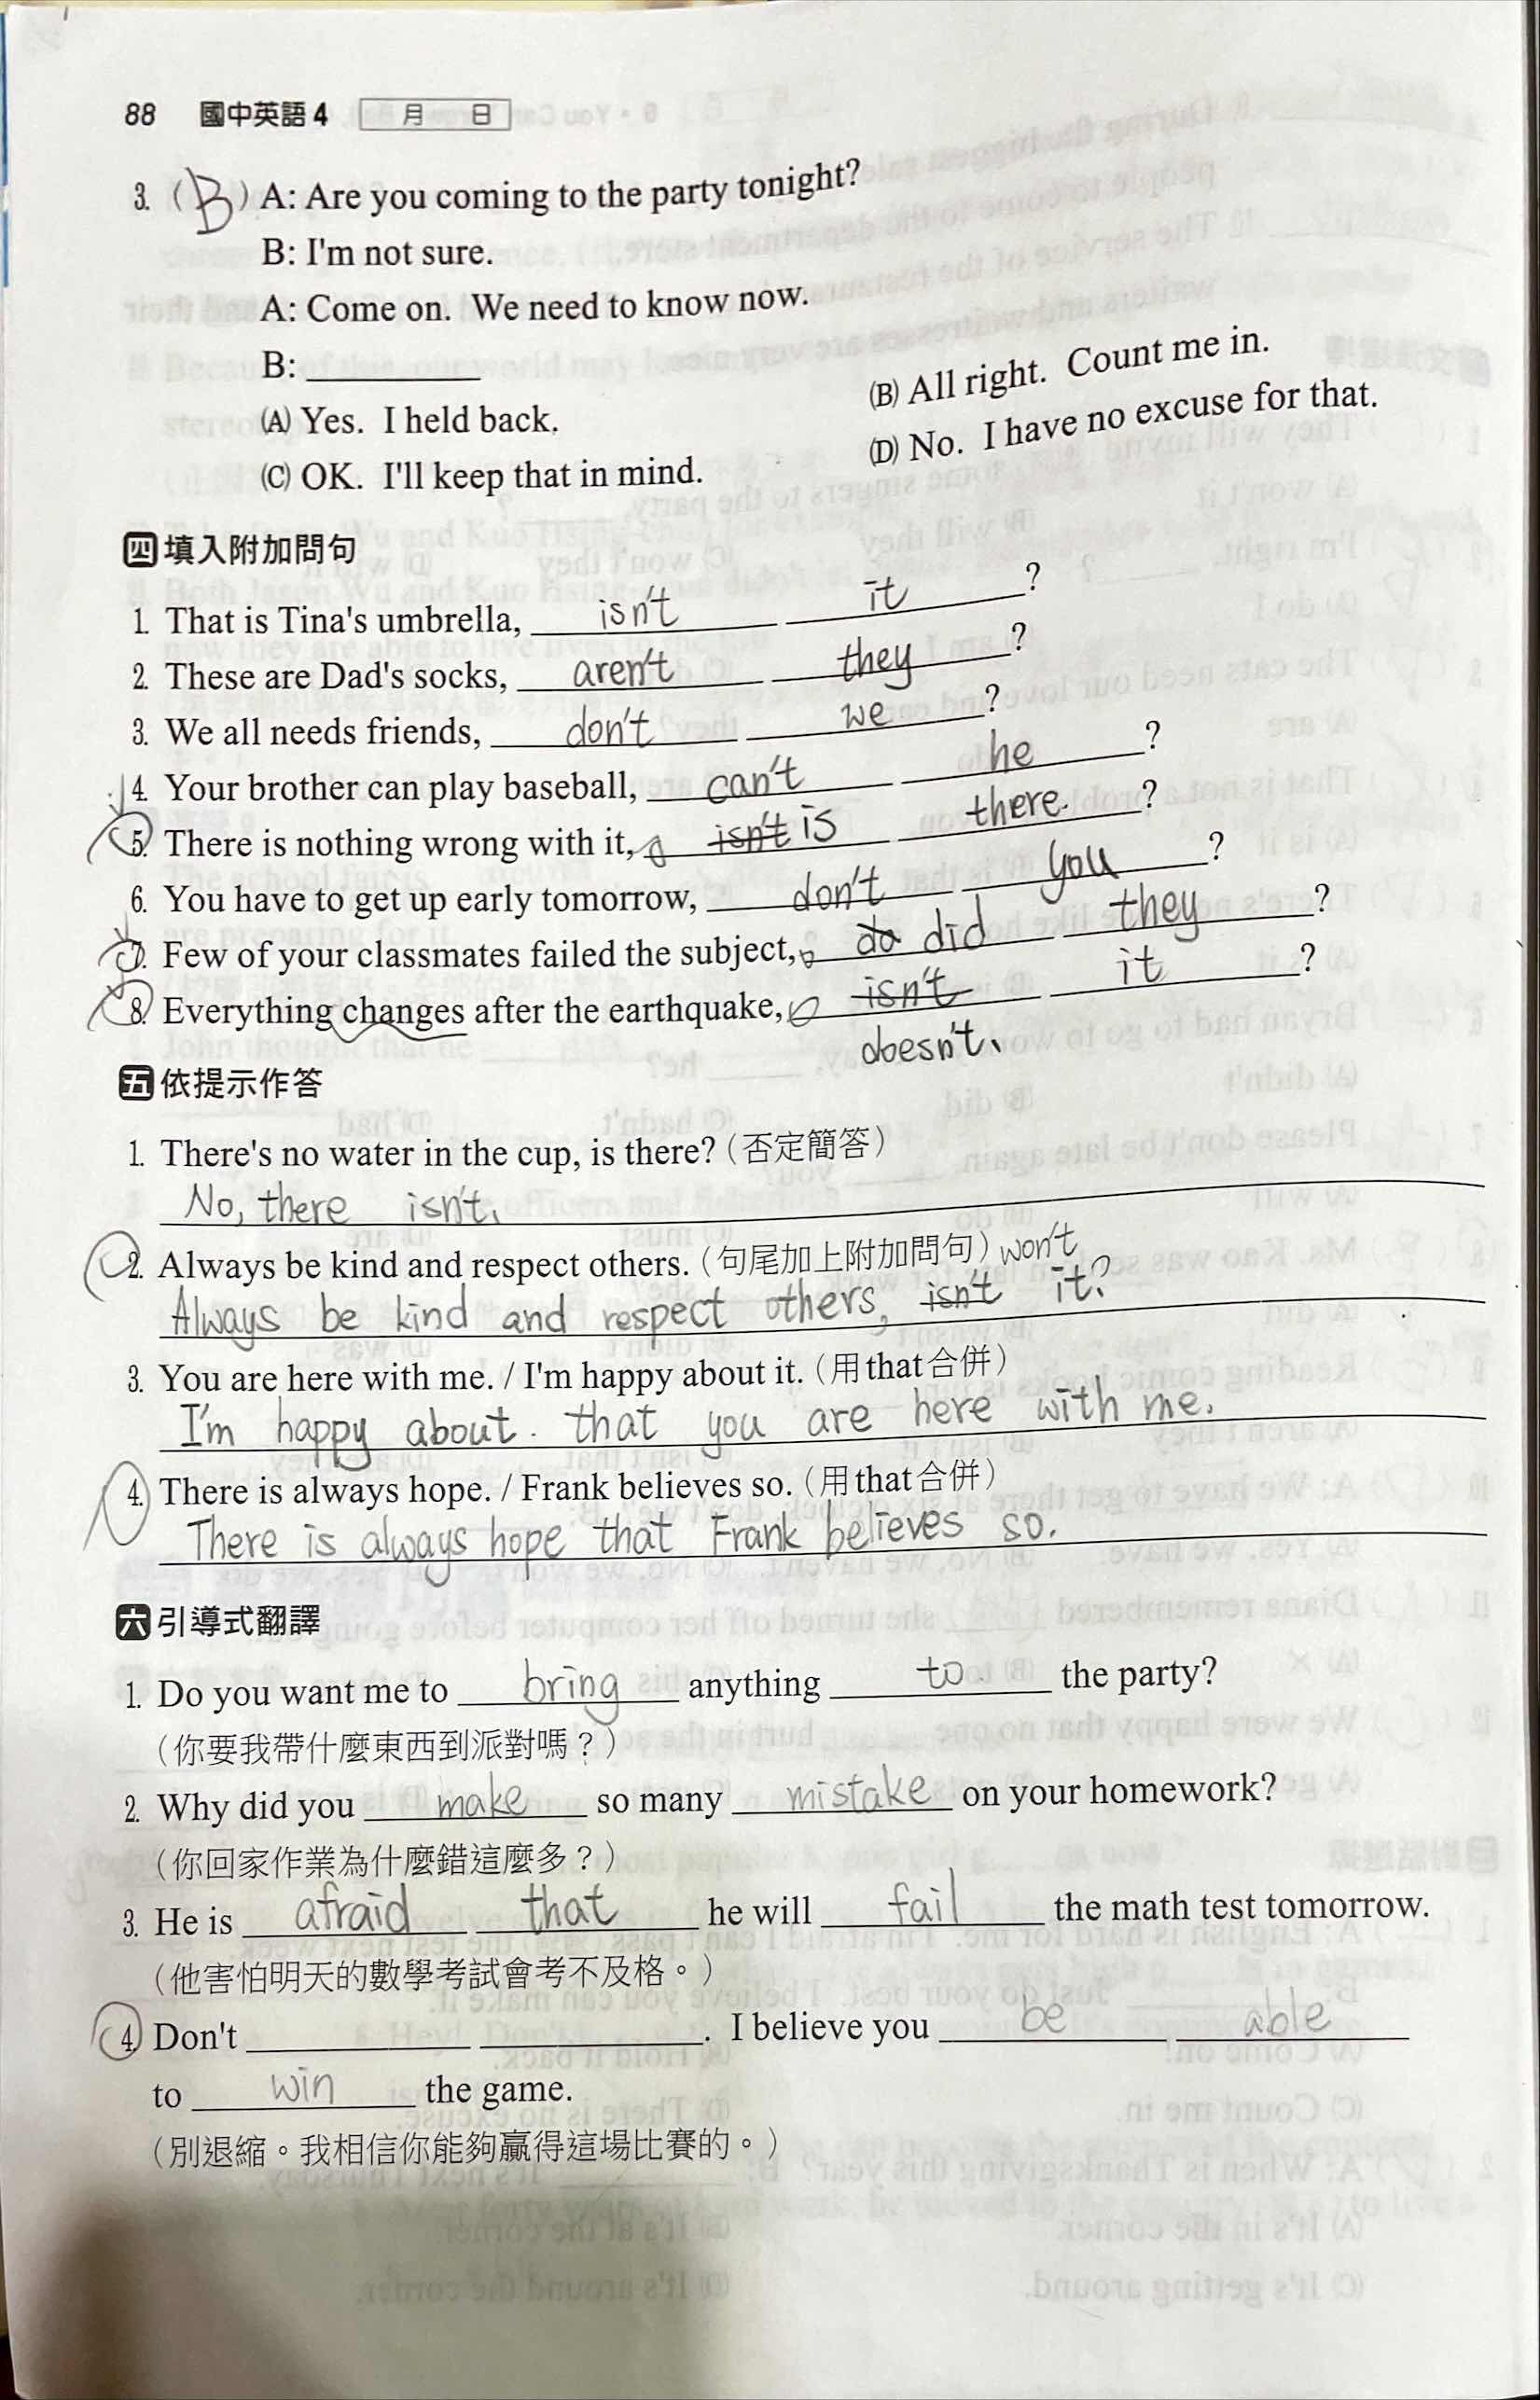 88 國中英語 4 月 日
3. ( B ) A: Are you coming to the party tonight?
B: I'm not sure.
A: Come on. We need to know now.
B: __________
(A) Yes. I held back.
(B) All right. Count me in.
(C) OK. I'll keep that in mind.
(D) No. I have no excuse for that.
四 填入附加問句
1. That is Tina's umbrella, isn't it ?
2. These are Dad's socks, aren't they ?
3. We all needs friends, don't we ?
4. Your brother can play baseball, can't he ?
5. There is nothing wrong with it, isn't is there ?
6. You have to get up early tomorrow, don't you ?
7. Few of your classmates failed the subject, do did they ?
8. Everything changes after the earthquake, isn't it ?
doesn't
五 依提示作答
1. There's no water in the cup, is there? (否定簡答)
No, there isn't.
2. Always be kind and respect others. (句尾加上附加問句) won't
Always be kind and respect others, isn't it?
3. You are here with me. / I'm happy about it. (用that合併)
I'm happy about that you are here with me.
4. There is always hope. / Frank believes so. (用that合併)
There is always hope that Frank believes so.
六 引導式翻譯
1. Do you want me to bring anything to the party?
(你要我帶什麼東西到派對嗎？)
2. Why did you make so many mistake on your homework?
(你回家作業為什麼錯這麼多？)
3. He is afraid that he will fail the math test tomorrow.
(他害怕明天的數學考試會考不及格。)
4. Don't __________ __________. I believe you be able
to win the game.
(別退縮。我相信你能夠贏得這場比賽的。)